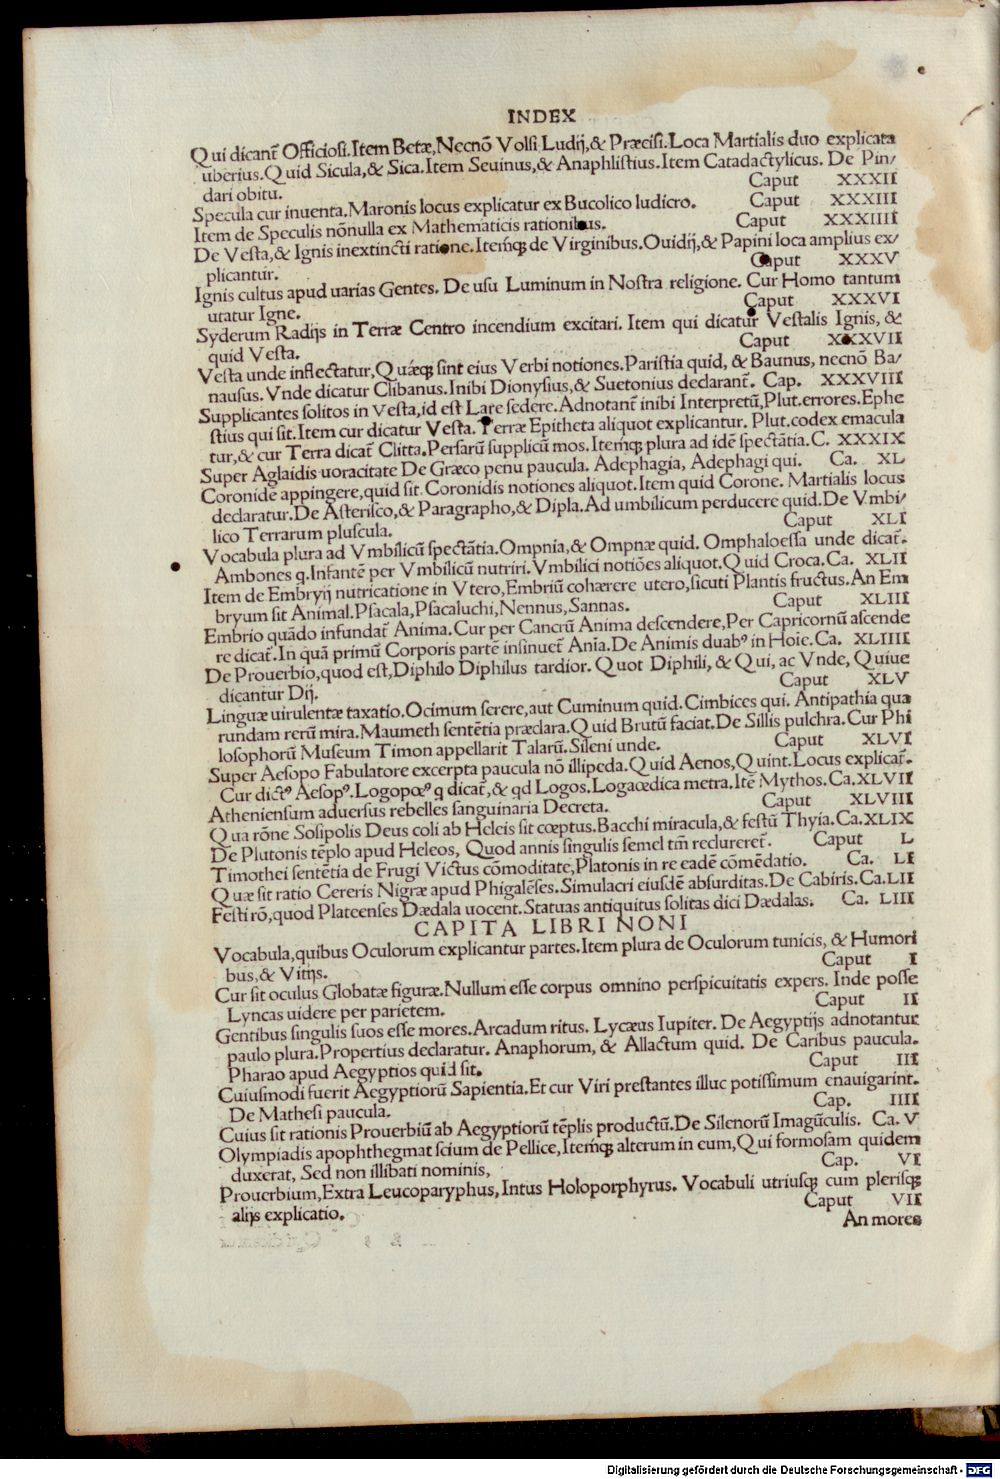 INDEX
Qui dicant̄ Officiosi.Item Betæ,Necnō Volsi Ludij,& Præcisi.Loca Martialis duo explicata
uberius.Quid Sicula,& Sica.Item Seuinus,& Anaphlistius.Item Catadactylicus. De Pin/
dari obitu. Caput XXXII
Specula cur inuenta.Maronis locus explicatur ex Bucolico ludicro. Caput XXXIII
Item de Speculis nōnulla ex Mathematicis rationibus. Caput XXXIIII
De Vesta,& Ignis inextincti ratione.Itemq; de Virginibus.Ouidij,& Papini loca amplius ex/
plicantur. Caput XXXV
Ignis cultus apud uarias Gentes. De usu Luminum in Nostra religione. Cur Homo tantum
utatur Igne. Caput XXXVI
Syderum Radijs in Terræ Centro incendium excitari. Item qui dicatur Vestalis Ignis, &
quid Vesta. Caput XXXVII
Vesta unde inflectatur,Quæq; sint eius Verbi notiones.Paristia quid, & Baunus, necnō Ba/
nausus.Vnde dicatur Clibanus.Inibi Dionysius,& Suetonius declarant̄. Cap. XXXVIII
Supplicantes solitos in Vesta,id est Lare sedere.Adnotant̄ inibi Interpretū,Plut.errores.Ephe
stius qui sit.Item cur dicatur Vesta. Terræ Epitheta aliquot explicantur. Plut.codex emacula
tur,& cur Terra dicat̄ Clitta.Persarū supplicū mos.Itemq; plura ad idē spectātia.C. XXXIX
Super Aglaidis uoracitate De Græco penu paucula. Adephagia, Adephagi qui. Ca. XL
Coronidē appingere,quid sit.Coronidis notiones aliquot.Item quid Corone. Martialis locus
declaratur.De Asterisco,& Paragrapho,& Dipla.Ad umbilicum perducere quid.De Vmbi/
lico Terrarum pluscula. Caput XLI
Vocabula plura ad Vmbilicū spectātia.Ompnia,& Ompnæ quid. Omphaloessa unde dicat̄.
Ambones q.Infantē per Vmbilicū nutriri.Vmbilici notiōes aliquot.Quid Croca.Ca. XLII
Item de Embryij nutricatione in Vtero,Embriū cohærere utero,sicuti Plantis fructus.An Em
bryum sit Animal.Psacala,Psacaluchi,Nennus,Sannas. Caput XLIII
Embrio quādo infundat̄ Anima.Cur per Cancrū Anima descendere,Per Capricornū ascende
re dicat̄.In quā primū Corporis partē insinuet̄ Anīa.De Animis duabꝰ in Hoīe.Ca. XLIIII
De Prouerbio,quod est,Diphilo Diphilus tardior. Quot Diphili, & Qui, ac Vnde, Quiue
dicantur Dij. Caput XLV
Linguæ uirulentæ taxatio.Ocimum serere,aut Cuminum quid.Cimbices qui. Antipathia qua
rundam rerū mira.Maumeth sentētia præclara.Quid Brutū faciat.De Sillis pulchra.Cur Phi
losophorū Museum Timon appellarit Talarū.Sileni unde. Caput XLVI
Super Aesopo Fabulatore excerpta paucula nō illipeda.Quid Aenos,Quint.Locus explicat̄.
Cur dictꝰ Aesopꝰ.Logopœꝰ q dicat̄,& qd Logos.Logaœdica metra.Itē Mythos.Ca.XLVII
Atheniensum aduersus rebelles sanguinaria Decreta. Caput XLVIII
Qua rōne Sosipolis Deus coli ab Heleis sit cœptus.Bacchi miracula,& festū Thyia.Ca.XLIX
De Plutonis tēplo apud Heleos, Quod annis singulis semel tm̄ recluderet̄. Caput L
Timothei sentētia de Frugi Victus cōmoditate,Platonis in re eadē cōmēdatio. Ca. LI
Quæ sit ratio Cereris Nigræ apud Phigalēses.Simulacri eiusdē absurditas.De Cabiris.Ca.LII
Festi rō,quod Plateenses Dædala uocent.Statuas antiquitus solitas dici Dædalas. Ca. LIII
CAPITA LIBRI NONI
Vocabula,quibus Oculorum explicantur partes.Item plura de Oculorum tunicis, & Humori
bus,& Vitijs. Caput I
Cur sit oculus Globatæ figuræ.Nullum esse corpus omnino perspicuitatis expers. Inde posse
Lyncas uidere per parietem. Caput II
Gentibus singulis suos esse mores.Arcadum ritus. Lycæus Iupiter. De Aegyptijs adnotantur
paulo plura.Propertius declaratur. Anaphorum, & Allactum quid. De Caribus paucula.
Pharao apud Aegyptios quid sit. Caput III
Cuiusmodi fuerit Aegyptiorū Sapientia.Et cur Viri prestantes illuc potissimum enauigarint.
De Mathesi paucula. Cap. IIII
Cuius sit rationis Prouerbiū ab Aegyptiorū tēplis productū.De Silenorū Imagūculis. Ca. V
Olympiadis apophthegmat scium de Pellice,Itemq; alterum in eum,Qui formosam quidem
duxerat, Sed non illibati nominis, Cap. VI
Prouerbium,Extra Leucoparyphus,Intus Holoporphyrus. Vocabuli utriusq; cum plerisq;
alijs explicatio. Caput VII
An mores
Digitalisierung gefördert durch die Deutsche Forschungsgemeinschaft - DFG